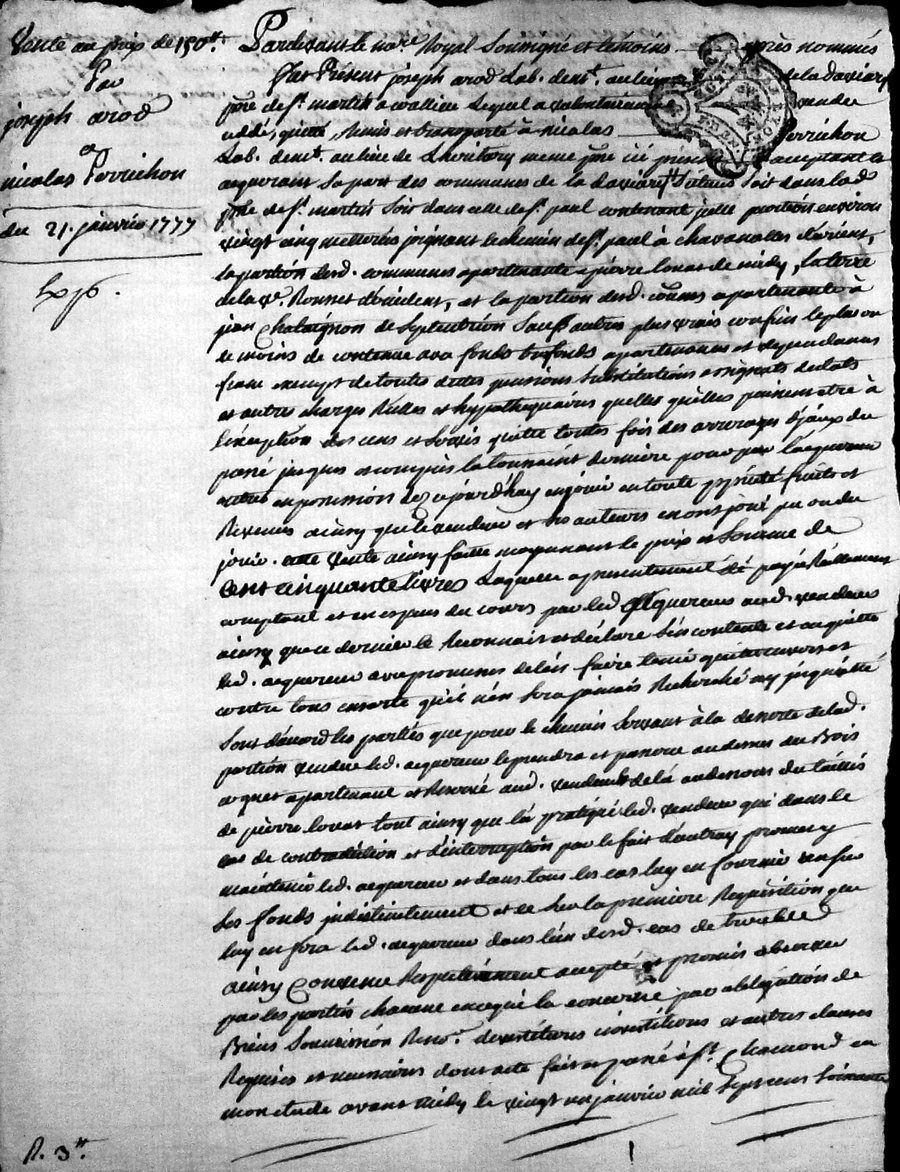 Vente au prix de 150tt.
Par
joseph arod
a
nicolas Perrichon
du 21. janvier 1777
Exp.
Pardevant le nore. Royal Soussigné et temoins après nommés
fut Présent joseph arod Lab. demt. au lieu de la daviary
psse de st. martin acoallieu Lequel a volontairement vendu
cedé, quitté, Remis et transporté à nicolas Perrichon
Lab. demt. au lieu de Lheritory meme psse ici present acceptant et
acquerant Sa part des communes de la daviary Situées Soit dans lad.
psse de st. martin Soit dans celle de st. paul contenant jcelle portion environ
vingt cinq metterées joignant le chemin de st. paul à chavanoles d'orient,
la portion desd. communes apartenante a pierre louat de midy, la terre
de la ve. Ronset d'occident, et la portion desd. coures apartenante à
jean Chalaignon de Septentrion Sauf autres plus vrais confins le plus ou
le moins de contenue avec fonds trefonds apartenances et dependances
franc exempt de toutes dettes pensions Substitutions assignats de dots
et autres charges Rières et hypothequaires quelles qu'elles puissent etre à
l'exeption des cens et Servis quitte toutes fois des arrerages d'jceux du
passé jusques et compris la toussaint derniere pour par l'acquereur
entrer en possession dez cejourd'huy en jouir en toute proprieté fruits et
Revenus ainsy que le vendeur et ses auteurs en ont joui pu ou du
jouir. cette vente ainsy faitte moyennant le prix et Somme de
Cent cinquante livres Laquelle a presentement eté payée Réellement
comptant et en especes du cours par led. acquereur aud. vendeur
ainsy que ce dernier le Reconnait et déclare S'en contente et en quitte
led. acquereur avec promesses de l'en faire tenir quitte envers et
contre tous ensorte qu'il n'en Sera jamais Recherché ny inquiété
Sont d'accord les parties que pour le chemin Servant à la desserte de lad.
portion vendue led. acquereur le prendra et passera au dessus du Bois
apartenant et Reservé aud. vendeur et delà au dessous du taillis
de pierre louat tout ainsy que l'a pratiqué led. vendeur qui dans le
cas de contradition et d'interruption par le fait d'autruy promet y
maintenir led. acquereur et dans tous les cas luy en fournir un sur
Ses fonds indistinctement et ce Sur la premiere Requisition que
luy en fera led. acquereur dans l'un desd. cas de trouble
ainsy Convenu Respectivement accepté et promis observer
par les parties chacune en ce qui la concerne par obligation de
Biens Soumission Renon. et autres clauses
Requises et necessaires dont acte fait et passé à st. Chamond en
mon etude avant midy le vingt un janvier mil Sept cent Soixante
R. 3tt.